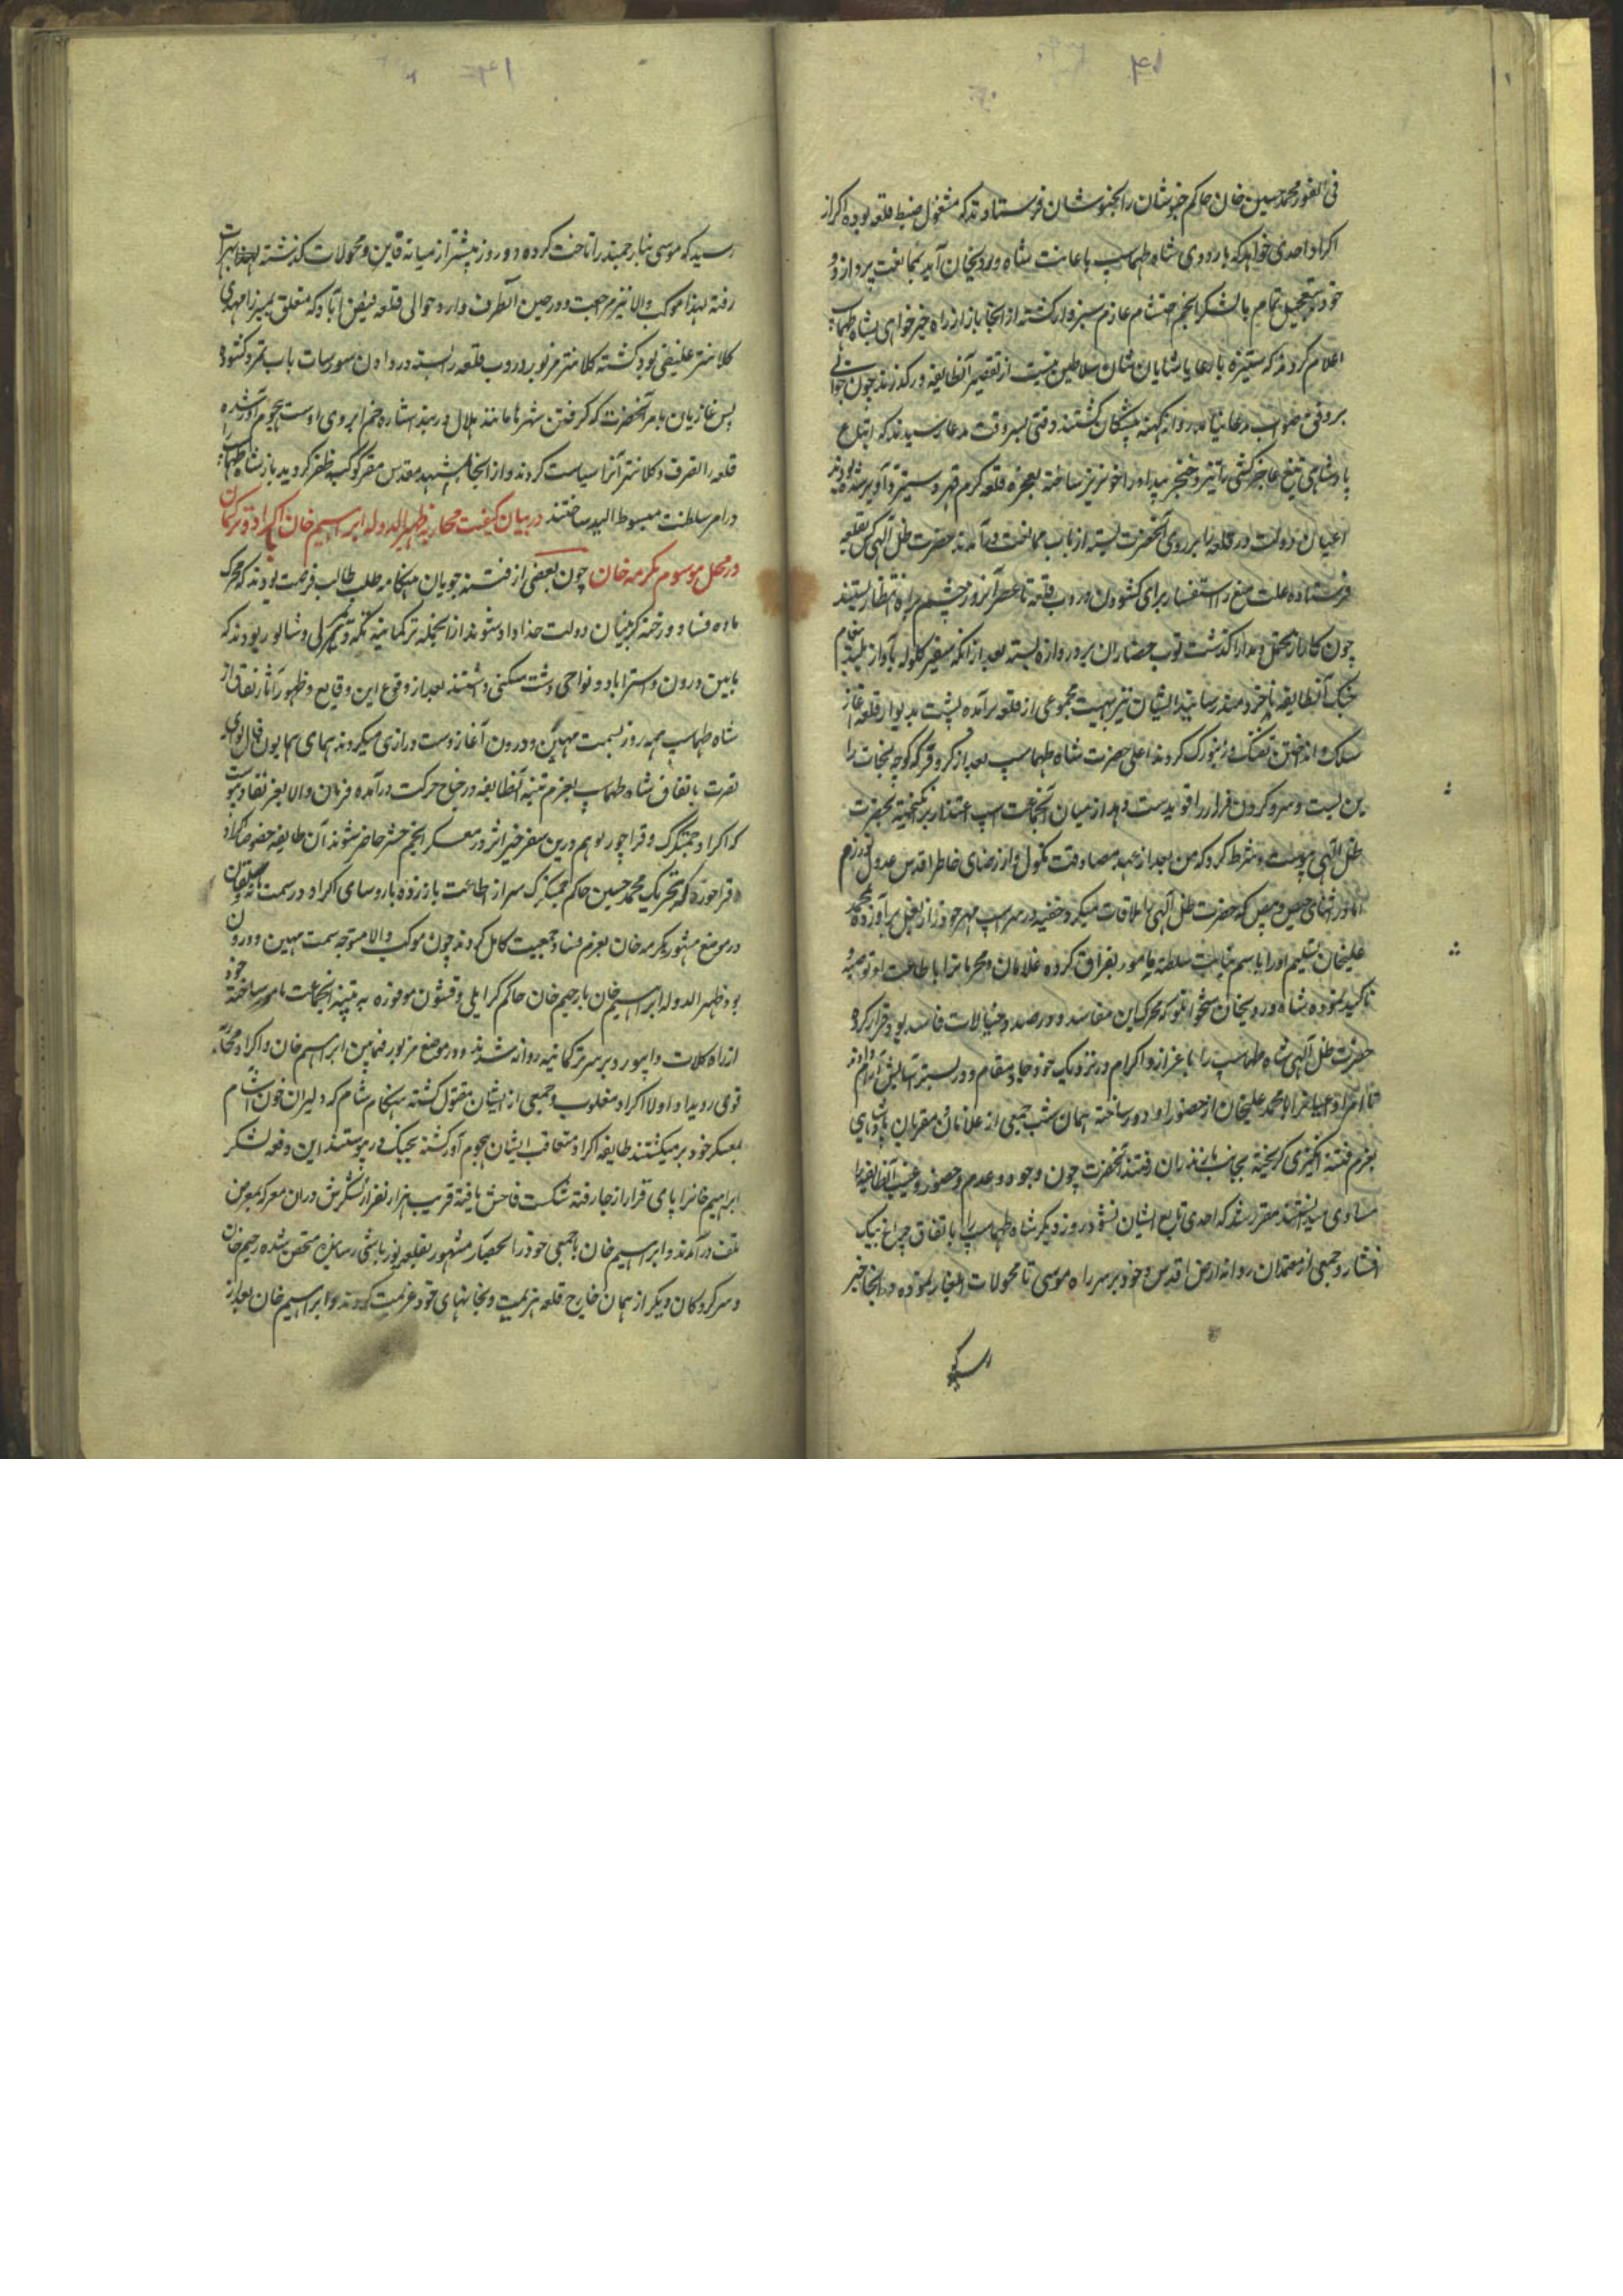 فی الفور محمد حسین خان حاکم خبوشان را بخبوشان فرستادند که مشغول ضبط قلعه بوده اگر از
اکراد احدی خواهد که باردوی شاه طهماسب باعانت شاه ویردیخان آید بممانعت پردازد و
خود بتعجیل تمام با لشکر انجم احتشام عازم سبزوار گشته از انجا باز از راه خیرخواهی بشاه طهماسب
اعلام کردند که ستیزه با رعایا شایان شان سلاطین نیست از تقصیر آنطایفه درگذرند چون جوابی
بر وفق صواب روانه گشتند وقتی بسر وقت مدعا رسیدند که اتباع
پادشاهی تیغ عاجزکشی را تیز و خنجر بیداد را خونریز ساخته قلعه گرم قهر و ستیز و آویز شده بودند
اعیان دولت در قلعه را بر روی آنحضرت بسته از باب ممانعت درآمدند حضرت ظل آلهی کس بقلعه
فرستاده علت منع را استفسار برای کشودن در وب قلعه تا عصر آنروز چشم براه انتظار نشستند
چون کار از تحمل و مدارا گذشت توب حصاران بر دروازه بسته بعد از آنکه صفیر گلوله بآواز بلند پیغام
جنگ آنطایفه ایشان نیز بهیئت مجموعی از قلعه برآمده پشت بدیوار قلعه آغاز
شلیک و انداختن تفنگ و زنبورک کردند اعلی حضرت شاه طهماسب بعد از کر و فر که کوچه نجات را
بن بست و سر و کردن فرار را قوید ست دید از میان آنجماعت اسب اعتذار برانگیخته بحضرت
ظل الهی پیوست و شرط کرد که من بعد از عهد مصادقت نکول و از رضای خاطر اقدس عدول نورزم
اما در اثنای حیص و بیص که حضرت ظل آلهی را ملاقات میکرد خفیه در سر اسب مهر خود را از بغل برآورده بمحمد
علیخان تسلیم او را باسم نیابت سلطنت مامور بفراق کرده غلامان و محرمانرا باطاعت او توصیه و
تاکید نموده شاه ویردیخان شیخوانلو که محرک این مفاسد و در صدد خیالات فاسد بود فرار کرد
حضرت ظل آلهی شاه طهماسب را باعزاز و اکرام در نزدیک خود جا و مقام و در بستر آسایش آرام دادند
محمد علیخان از حضور او دور ساخته همان شب جمعی از غلامان و مقربان پادشاهی
بعزم فتنه انگیزی گریخته بجانب مازندران رفتند آنحضرت چون وجود و عدم و حضور و غیب آنطایفه را
مساوی میدانستند مقرر شد که احدی تابع ایشان نشود روز دیگر شاه طهماسب را باتفاق چراغ بیک
افشار و جمعی از معتمدان روانه ارض اقدس و خود بر سر راه موسی تا محولات ایلغار نموده در انجا خبر
رسید که
رسید که موسی بنابر جمند را تاخت کرده دو روز پیشتر از میانه قاین و محولات گذشته بهرات
رفته لهذا موکب والا نیز مراجعت و در حین انطرف وارد حوالی قلعه فیض آباد که متعلق بمیرزا مهدی
کلانتر علیقی بود گشته کلانتر مزبور در وب قلعه را بسته در دادن سیورسات باب تمرد کشود
پس غازیان بامر آنحضرت که گرفتن شهرها مانند هلال در بند اشاره خم ابروی اوست هجوم آور شده
قلعه را تصرف و کلانتر آنرا سیاست کردند و از انجا مشهد مقدس مقر کوکبه ظفر گردید باز شاه طهماسب
در امر سلطنت مبسوط الید ساختند در بیان کیفیت محاربه ظهیرالدوله ابراهیم خان با اکراد و ترکمان
در محل موسوم بکرمه خان چون بعضی از فتنه جویان هنگامه طلب طالب فرصت بودند که محرک
ماده فساد و رخنه گر بنیان دولت خداداد شوند از انجمله ترکمانیه تکه و یمرلی و شالور بودند که
مابین درون و استراباد و نواحی دشت سکنی داشتند بعد از وقوع این وقایع و ظهور آثار نفاق از
شاه طهماسب همه روز بسمت مهین و درون آغاز دست درازی میکردند همای همایون فال لوای
نصرت باتفاق شاه طهماسب بعزم تنبیه آنطایفه در جناح حرکت درآمده فرمان والا بعز نفاد پیوست
که اکراد جمشکزک و قراچورلو هم درین سفر خیر اثر در معسکر انجم حشر حاضر شوند آن طایفه
قراجوزه که بتحریک محمد حسین حاکم جمشکزک سر از اطاعت باز زده با روسای اکراد در سمت مانه و سملقان
در موضع مشهور بکرمه خان بعزم فساد جمعیت کامل کردند چون موکب والا متوجه سمت مهین و درون
بود ظهیر الدوله ابراهیم خان با رحیم خان حاکم گرایلی و قشون موفوره به تنبیه انجماعت مامور ساخته خود
از راه کلات و ابیورد بر سر ترکمانیه روانه شدند و در موضع مزبور فیمابین ابراهیم خان و اکراد محاربه
قوی رویداد اولا اکراد مغلوب و جمعی از ایشان مقتول گشته هنگام شام که دلیران خون آشام
بمعسکر خود برمیگشتند طایفه اکراد متعاقب ایشان هجوم آور گشته بجنگ در پیوستند این دفعه لشکر
ابراهیم خانرا پای قرار از جا رفته شکست فاحش یافته قریب هزار نفر از لشکرش دران معرکه بمعرض
تلف درآمدند و ابراهیم خان با جمعی خود را بحصار مشهور بقلعه یوزباشی رسانیده متحصن شده رحیم خان
و سرکردکان دیگر از همان خارج قلعه هزیمت و بخانهای خود عزیمت کردند و ابراهیم خان بعد از